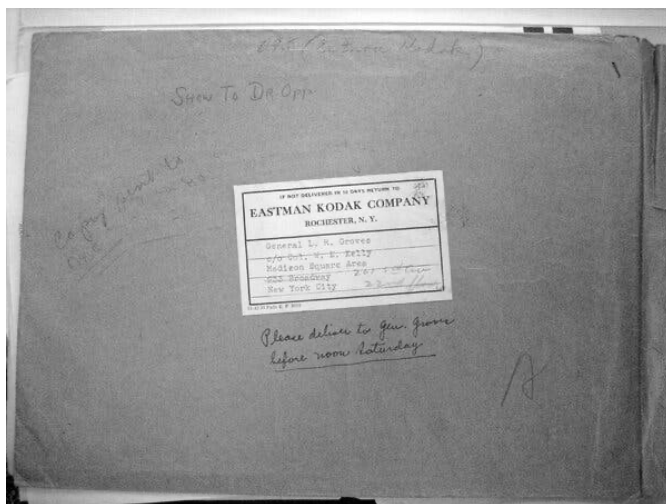 (Eastman Kodak)
SHOW TO DR OPP
Copy sent to
IF NOT DELIVERED IN 10 DAYS RETURN TO
EASTMAN KODAK COMPANY
ROCHESTER, N. Y.
General L. R. Groves
c/o Col. W. E. Kelly
Madison Square Area
Broadway
New York City
Please deliver to Gen. Groves
before noon Saturday
A